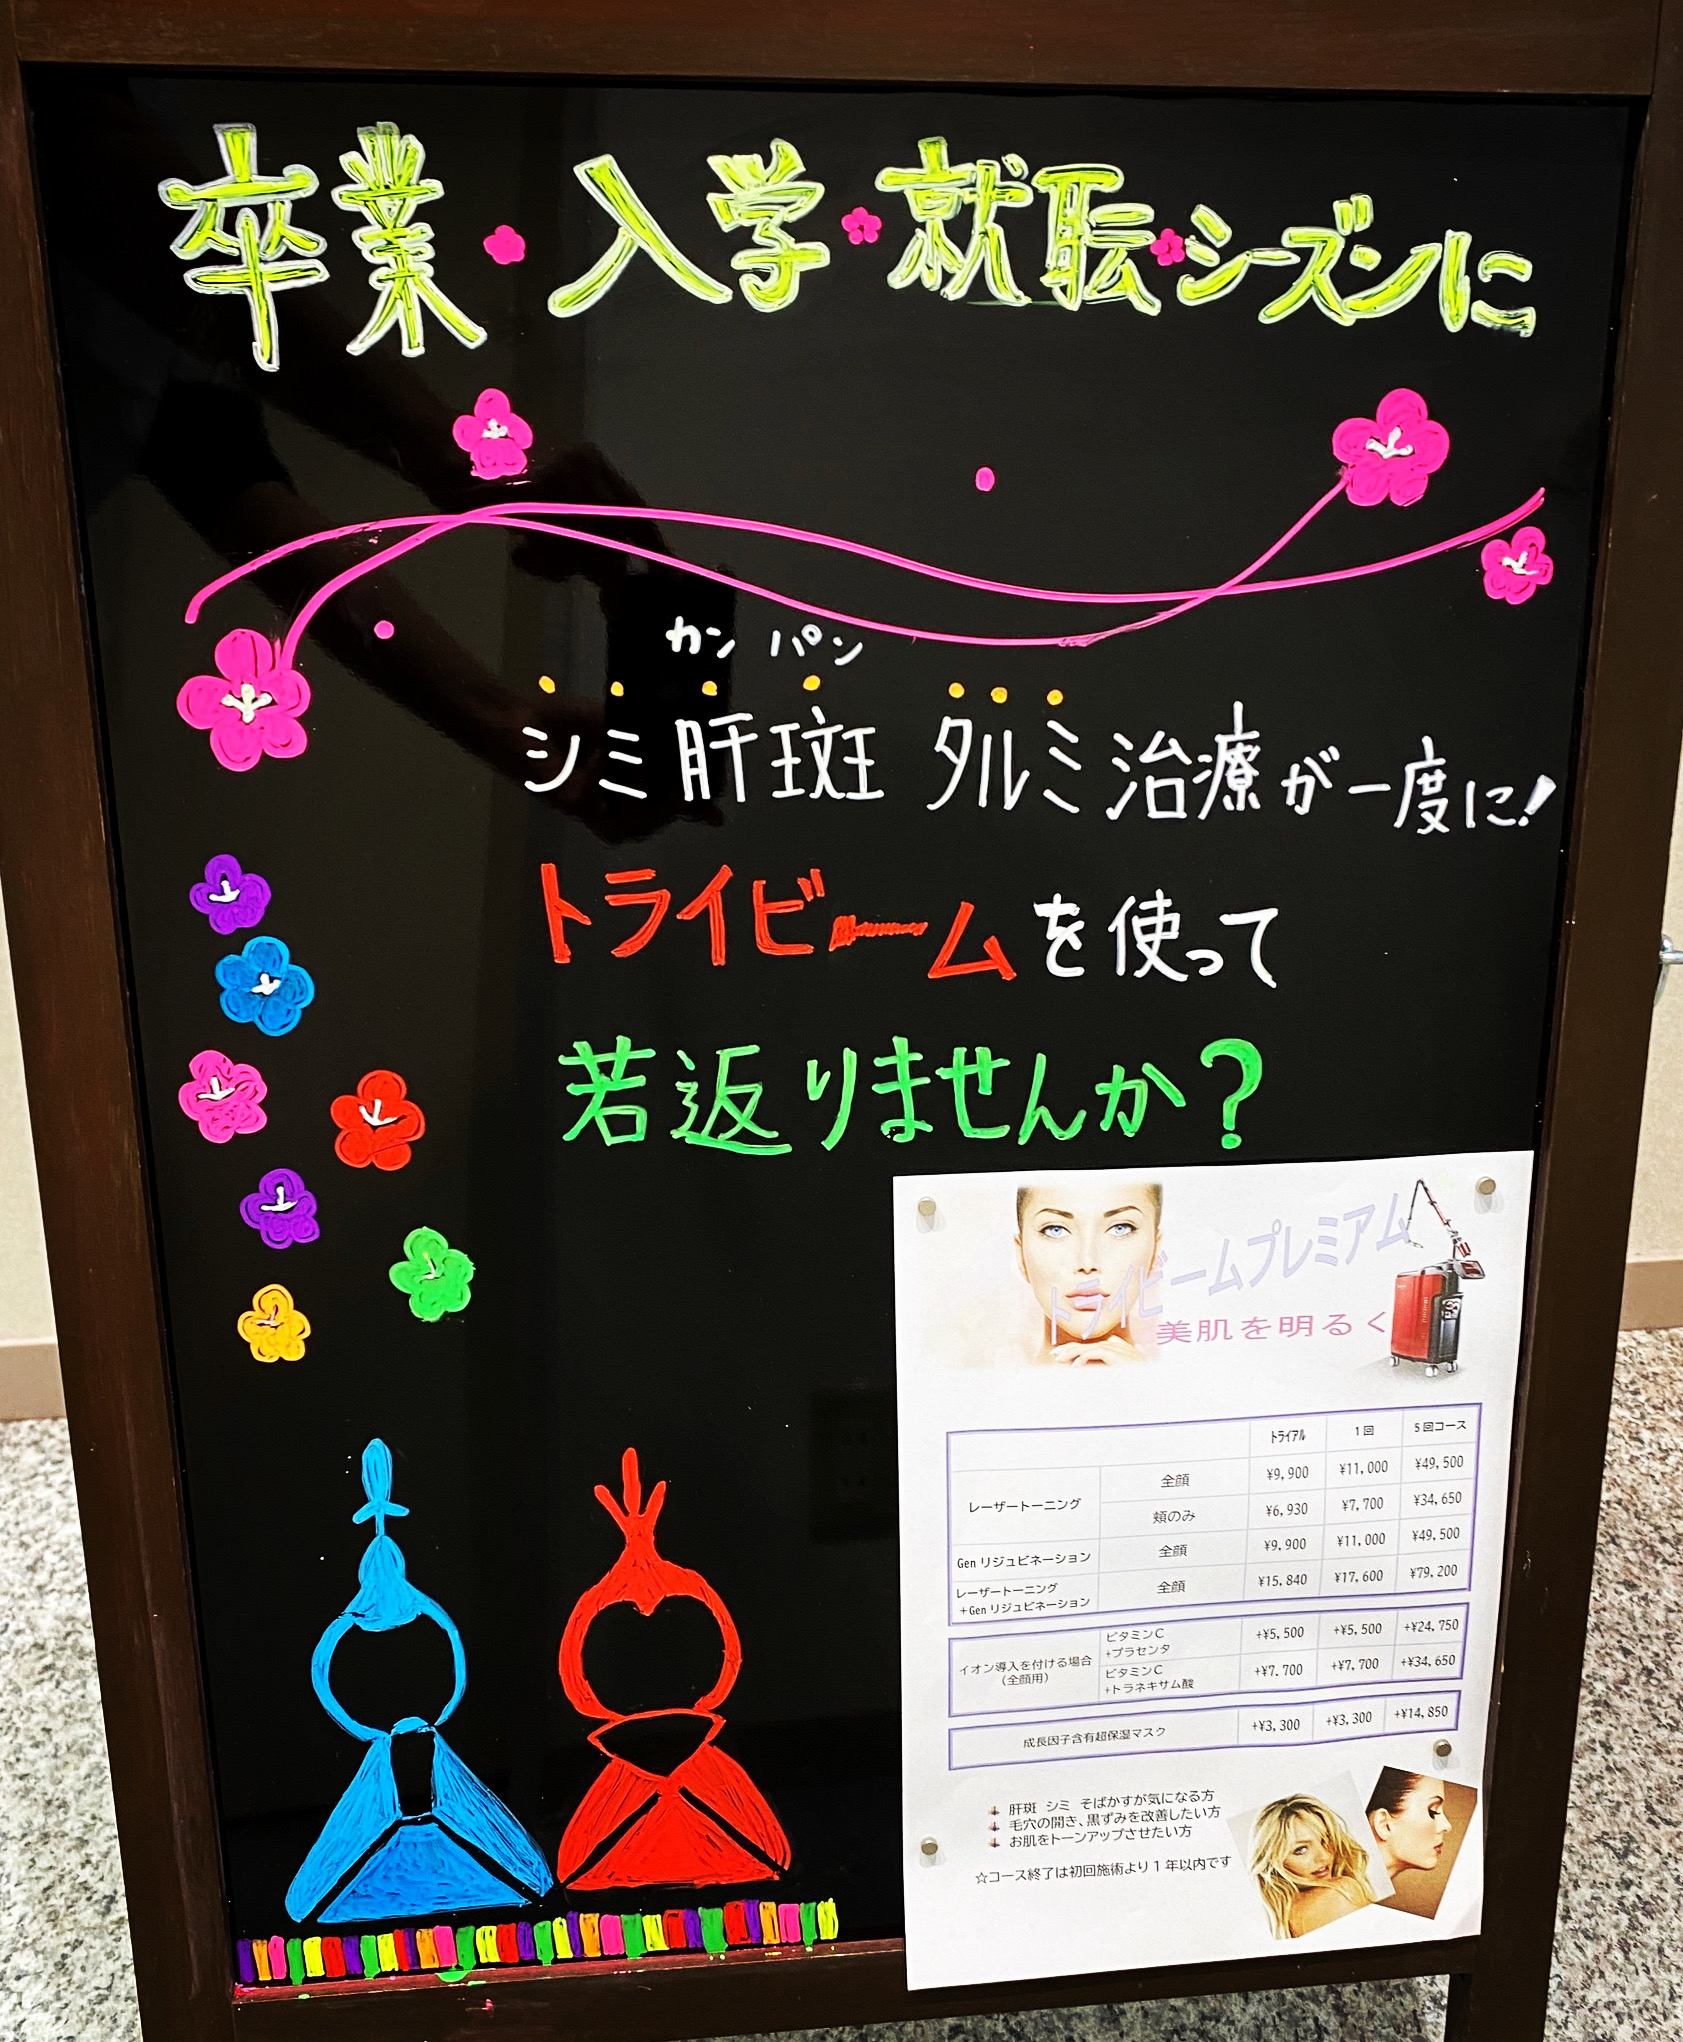 卒業・入学・就転・シーズンに
カン パン
シミ 肝斑 タルミ 治療が一度に!
トライビームを使って
若返りませんか?
トライビームプレミアム
美肌を明るく
トライアル 1回 5回コース
レーザートーニング 全顔 ¥9,900 ¥11,000 ¥49,500
頬のみ ¥6,930 ¥7,700 ¥34,650
Gen リジュビネーション 全顔 ¥9,900 ¥11,000 ¥49,500
レーザートーニング
+Gen リジュビネーション 全顔 ¥15,840 ¥17,600 ¥79,200
イオン導入を付ける場合
(全顔用)
ビタミンC
+プラセンタ +¥5,500 +¥5,500 +¥24,750
ビタミンC
+トラネキサム酸 +¥7,700 +¥7,700 +¥34,650
成長因子含有超保湿マスク +¥3,300 +¥3,300 +¥14,850
肝斑 シミ そばかすが気になる方
毛穴の開き、黒ずみを改善したい方
お肌をトーンアップさせたい方
☆コース終了は初回施術より1年以内です